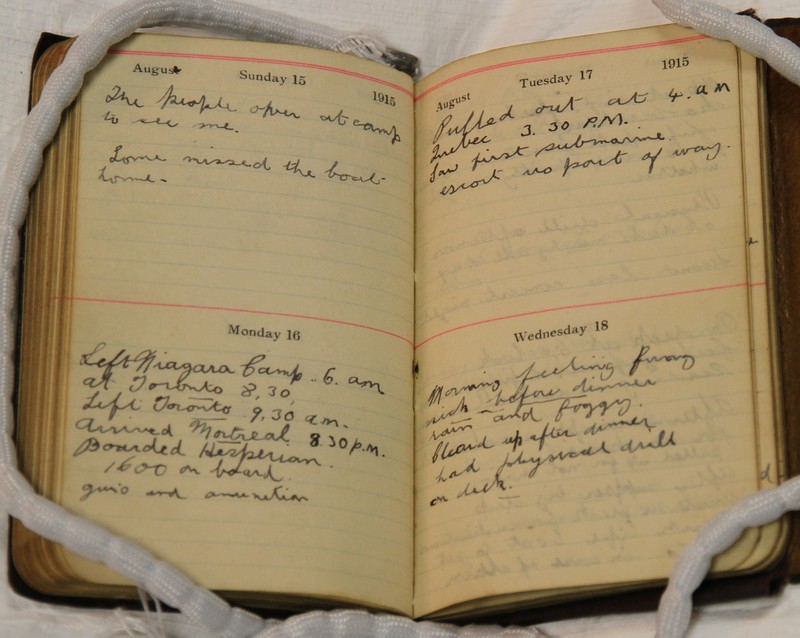 August Sunday 15 1915
The people over at camp
to see me.
Some missed the boat
home-
Monday 16
Left Niagara Camp . 6. am
at Toronto 8,30,
Left Toronto 9,30 am.
Arrived Mortreal 8.30 p.m.
Boarded Hesperian.
1600 on board.
guns and amunition
August Tuesday 17 1915
Pulled out at 4. am
Quebec 3. 30 P.M.
Saw first submarine.
escort us part of way.
Wednesday 18
Morning feeling funny
sick - before dinner
rain and foggy.
Cleard up after dinner
had physical drill
on deck.